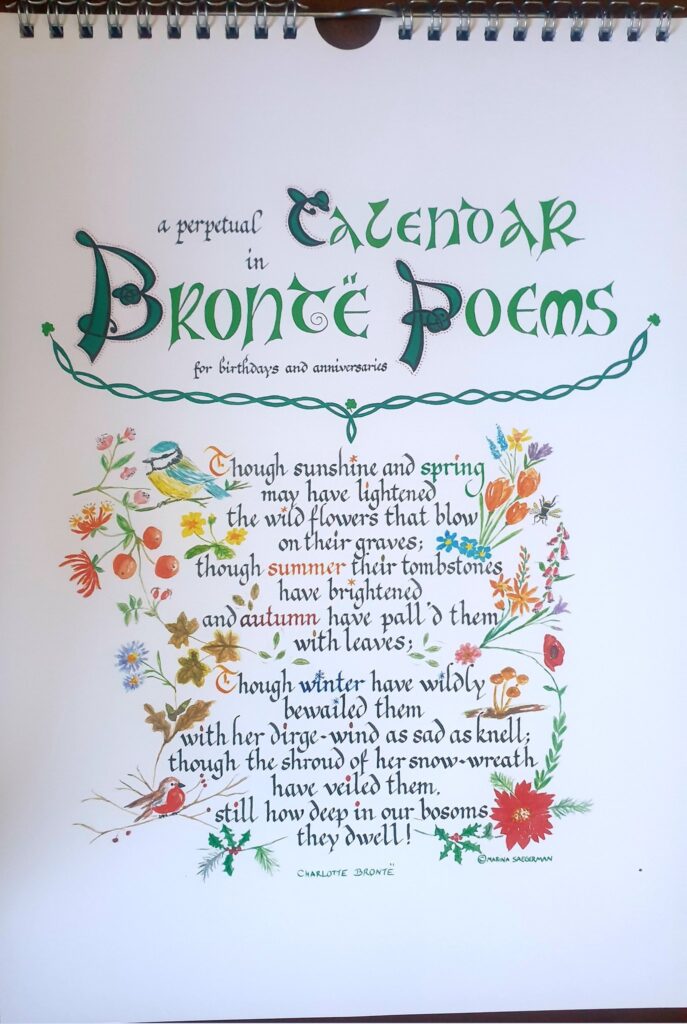 a perpetual CALENDAR
in
BRONTË POEMS
for birthdays and anniversaries
Though sunshine and spring
may have lightened
the wild flowers that blow
on their graves;
though summer their tombstones
have brightened
and autumn have pall'd them
with leaves;
Though winter have wildly
bewailed them
with her dirge-wind as sad as knell;
though the shroud of her snow-wreath
have veiled them,
still how deep in our bosoms
they dwell!
©MARINA SAEGERMAN
CHARLOTTE BRONTË